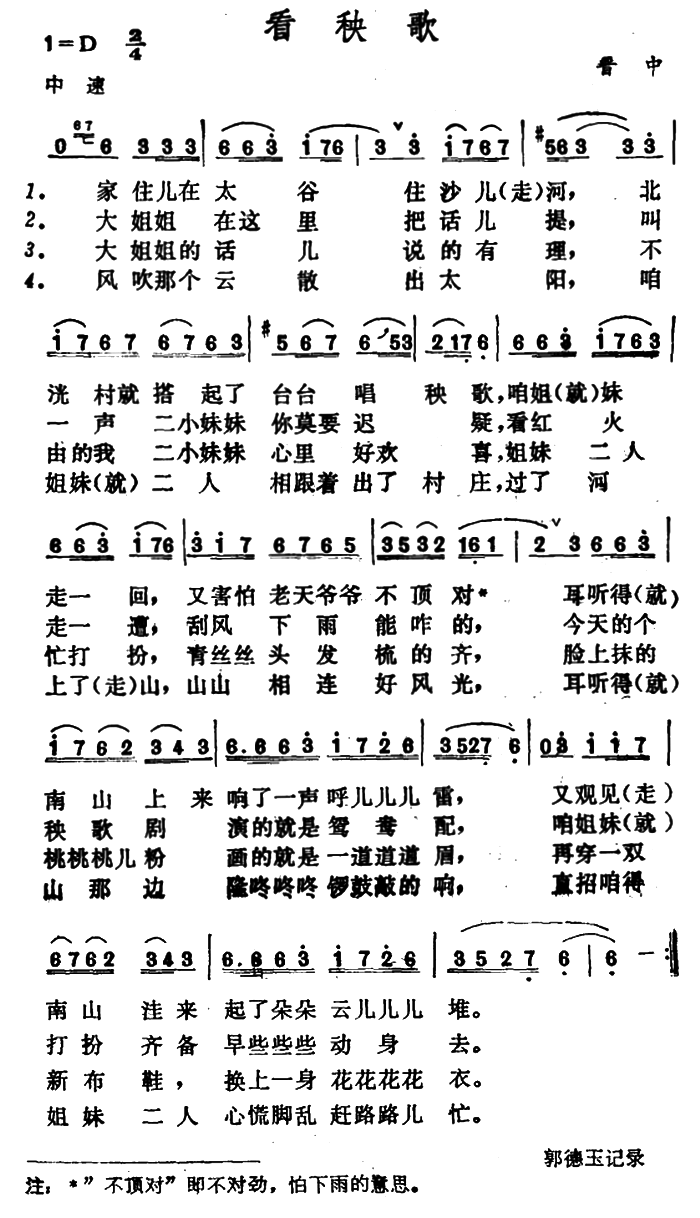 看秧歌
1=D 2/4
晋中
中速
0 67 6 3 3 3 | 6 6 3 i 7 6 | 3 3 i 7 6 7 | #5 6 3 3 3 |
1. 家住儿在太谷住沙儿(走)河，北
2. 大姐姐在这里把话儿提，叫
3. 大姐姐的话儿说的有理，不
4. 风吹那个云散出太阳，咱
i 7 6 7 6 7 6 3 | #5 6 7 6 5 3 | 2 1 7 6 | 6 6 3 i 7 6 3 |
洸村就搭起了台台唱秧歌，咱姐(就)妹
一声二小妹妹你莫要迟疑，看红火
由的我二小妹妹心里好欢喜，姐妹二人
姐妹(就)二人相跟着出了村庄，过了河
6 6 3 i 7 6 | 3 i 7 6 7 6 5 | 3 5 3 2 1 6 1 | 2 3 6 6 3 |
走一回，又害怕老天爷爷不顶对* 耳听得(就)
走一遭，刮风下雨能咋的，今天的个
忙打扮，青丝丝头发梳的齐，脸上抹的
上了(走)山，山山相连好风光，耳听得(就)
i 7 6 2 3 4 3 | 6. 6 6 3 i 7 2 6 | 3 5 2 7 6 | 0 3 i i 7 |
南山上来响了一声呼儿儿儿雷，又观见(走)
秧歌剧演的就是鸳鸯配，咱姐妹(就)
桃桃桃儿粉画的就是一道道道眉，再穿一双
山那边隆咚咚咚锣鼓敲的响，直招咱得
6 7 6 2 3 4 3 | 6. 6 6 3 i 7 2 6 | 3 5 2 7 6 | 6 — :‖
南山洼来起了朵朵云儿儿儿堆。
打扮齐备早些些些动身去。
新布鞋，换上一身花花花花衣。
姐妹二人心慌脚乱赶路路儿忙。
郭德玉记录
注：*"不顶对"即不对劲，怕下雨的意思。